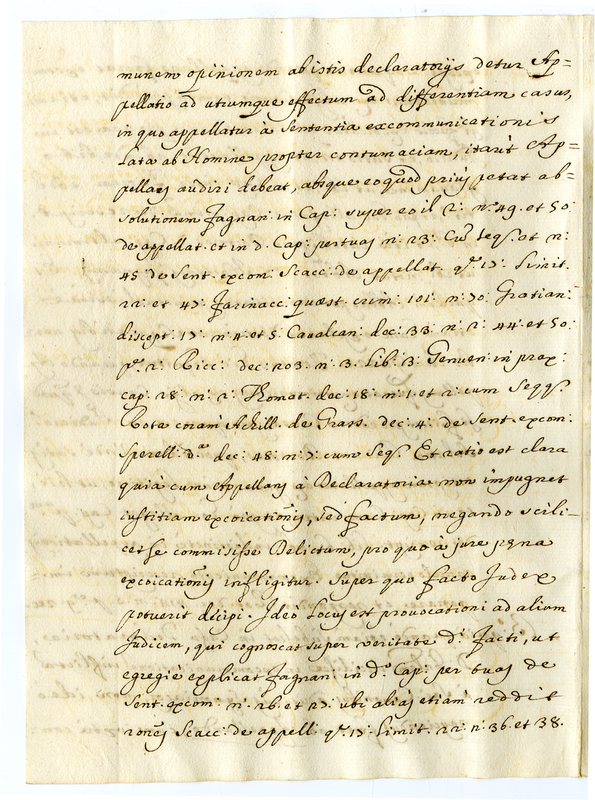 munem opinionem ab istis declaratorijs detur Ap=
pellatio ad utrumque effectum ad differentiam casus,
in quo appellatur à Sententia excommunicationis
Lata ab Homine propter contumaciam, itaut Ap=
pellans audiri debeat, absque eo quod prius petat ab=
solutionem Fagnan: in Cap: super eo il 2: n.º 49. et 50:
de appellat. et in d. Cap: per tuas n: 23: Cũ seqq. et n:
45 de Sent. excom: Scacc: de appellat. q. 17: Limit.
22: et 47: Farinacc: quæst. crim: 101: n: 70: Gratian:
discept: 17: n: 4: et 5: Cavalcan: dec: 33: n: 2: 44: et 50:
p. 2: Ricc: dec: 203: n: 3: Lib: 3: Genuen: in prax:
cap: 28: n: 2: Thomat: dec: 18: n: 1: et 2: cum Seqq.
Rota coram Achill: de Grass: dec: 4: de Sent. excom:
Sperell: dec: 48: n: 7: cum Seq. Et ratio est clara
quia cum Appellans à Declaratoria non impugnet
iustitiam excoicationis, sed factum, negando scili=
cet se commisisse Delictum, pro quo à jure pęna
excoicationis infligitur. Super quo facto Judex
potuerit decipi. Ideò Locus est provocationi ad alium
Judicem, qui cognoscat super veritate d.ⁱ facti, ut
egregiè explicat Fagnan: in d.º Cap: per tuas de
Sent. excom: n: 26: et 27: ubi alias etiam reddit
rones Scacc: de appell: q. 17: Limit: 22: n: 36: et 38.